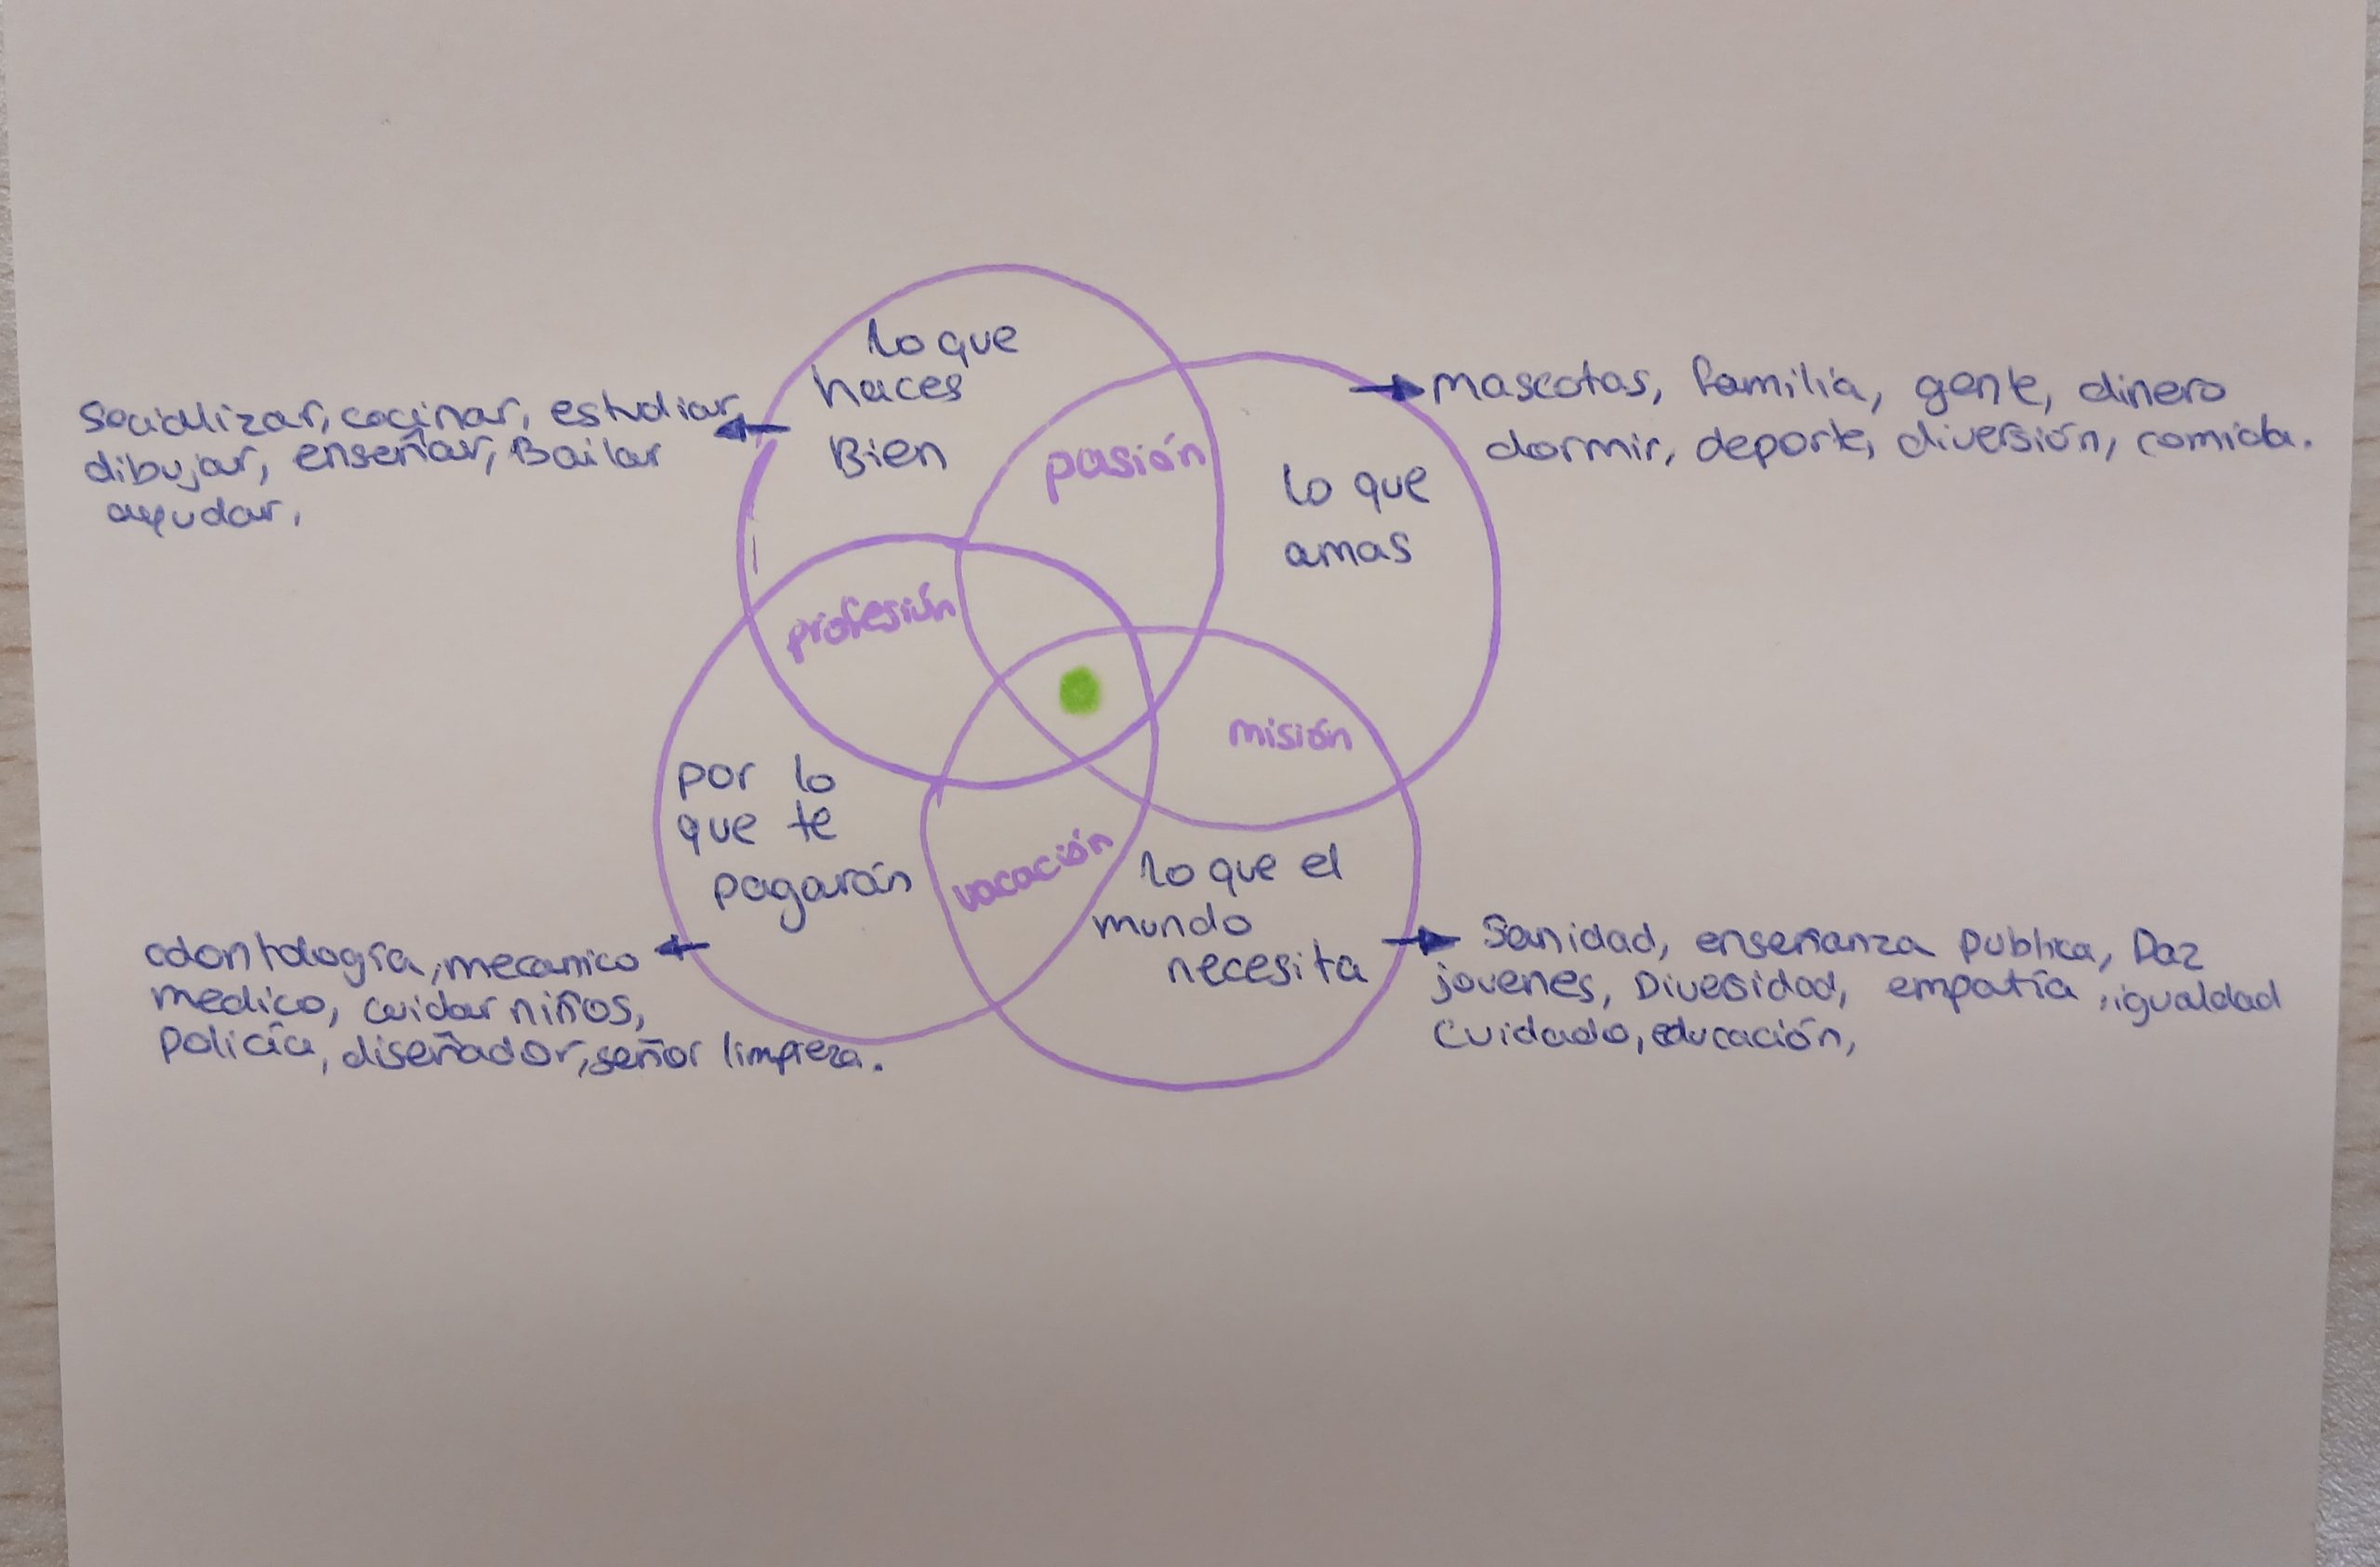 lo que
haces
Bien
socializar, cocinar, estudiar,
dibujar, enseñar, Bailar
ayudar,
pasión
lo que
amas
mascotas, familia, gente, dinero
dormir, deporte, diversión, comida.
profesión
misión
por lo
que te
pagarán
vocación
lo que el
mundo
necesita
odontología, mecanico
medico, cuidar niños,
policía, diseñador, señor limpieza.
Sanidad, enseñanza publica, Paz
jovenes, Divesidad, empatía, igualdad
Cuidado, educación,